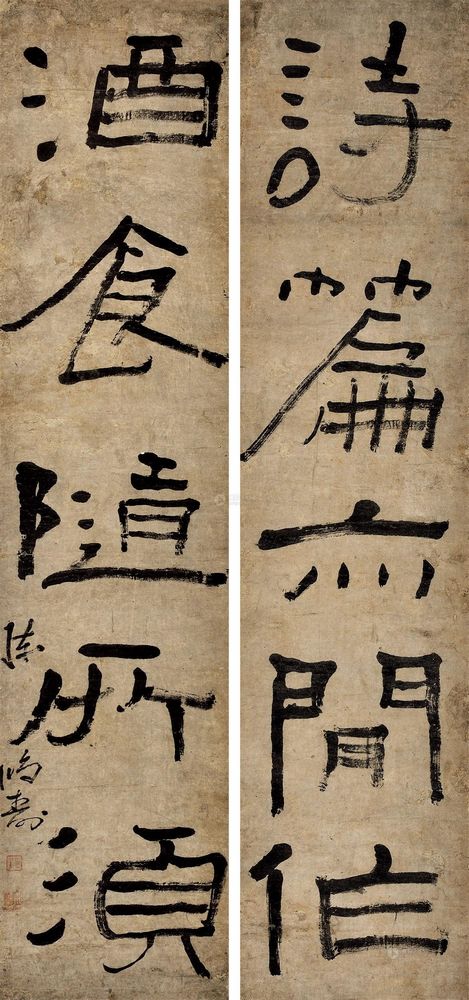 詩篇亦閒作
酒食隨所須
陳鴻壽